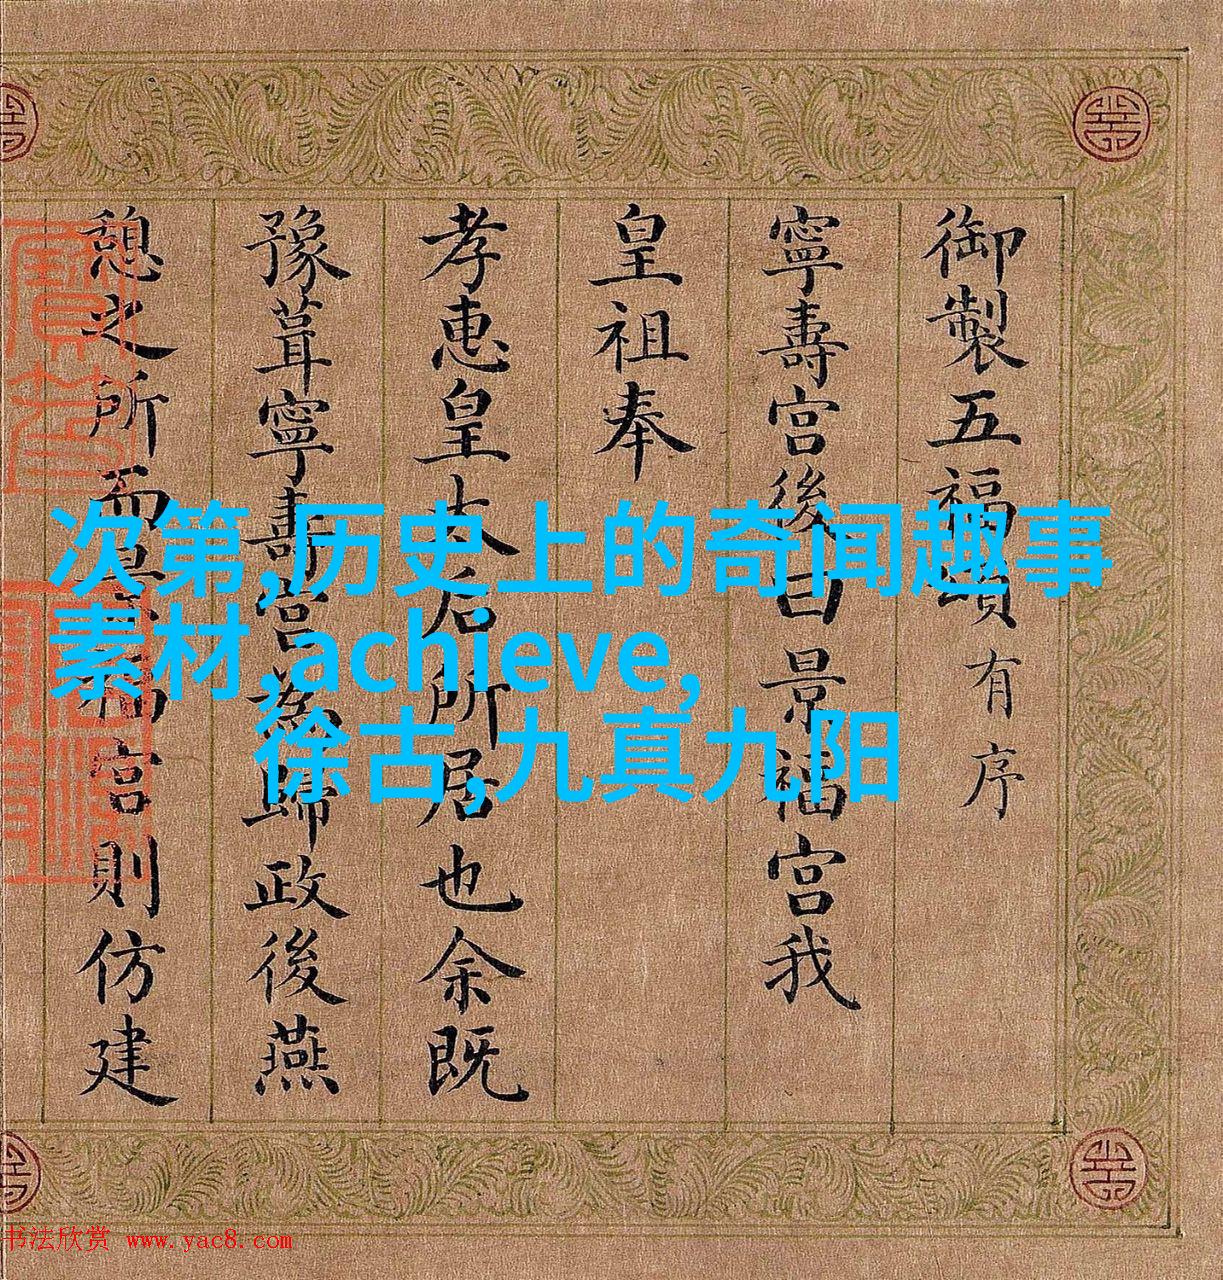 御製五福頌有序
寧壽宮後曰景福宮我
皇祖奉
孝惠皇太后所居也余既
豫葺寧壽宮為歸政後燕
憩之所而景福宮則仿建
次第,历史上的奇闻趣事
素材,achieve,
徐古,九真九阳
书法欣赏 www.yac8.com